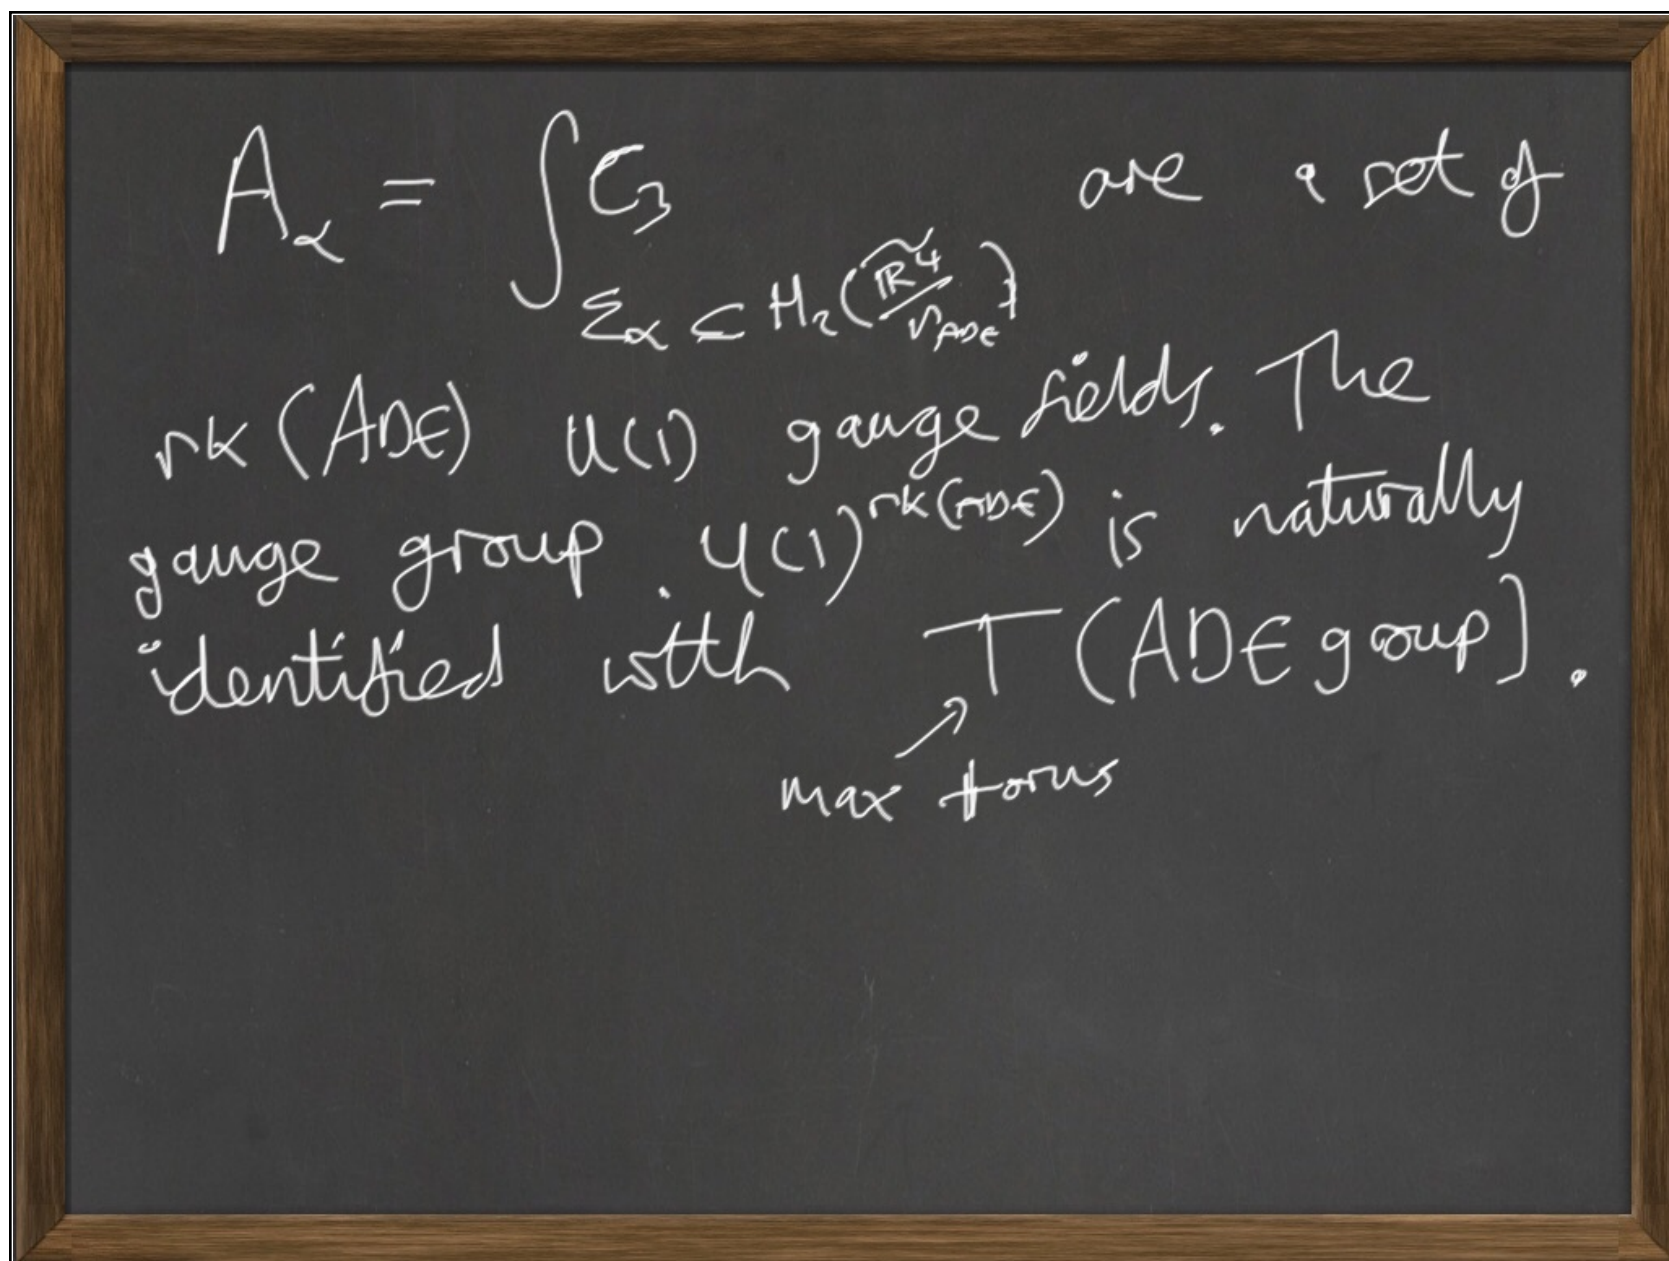 A_α = ∫ C_3 are a set of
Σ_α ⊆ H_2(\widetilde{ℝ^4/Γ_{ADE}})
rk (ADE) U(1) gauge fields. The
gauge group. U(1)^{rk(ADE)} is naturally
identified with T (ADE group).
max torus